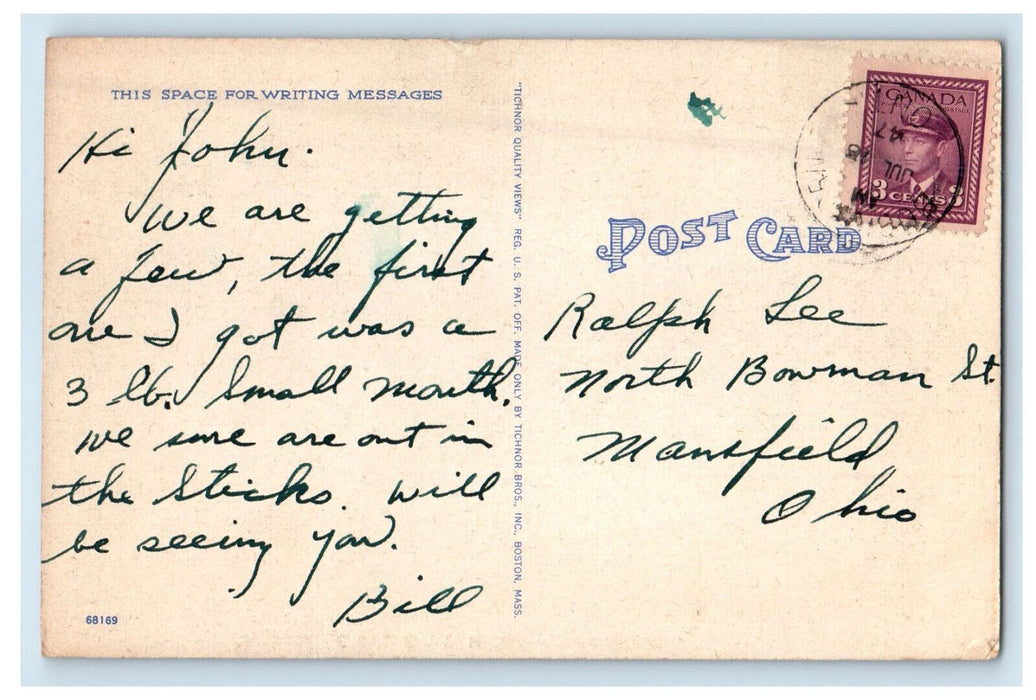 THIS SPACE FOR WRITING MESSAGES
Hi John.
We are getting
a few, the first
one I got was a
3 lb. Small mouth.
we sure are out in
the Sticks. will
be seeing you.
Bill
68169
"TICHNOR QUALITY VIEWS" REG. U. S. PAT. OFF. MADE ONLY BY TICHNOR BROS., INC., BOSTON, MASS.
POST CARD
CANADA
POSTAGE
3 CENTS 3
AM
JUL 15
47
Ralph Lee
North Bowman St.
Mansfield
Ohio